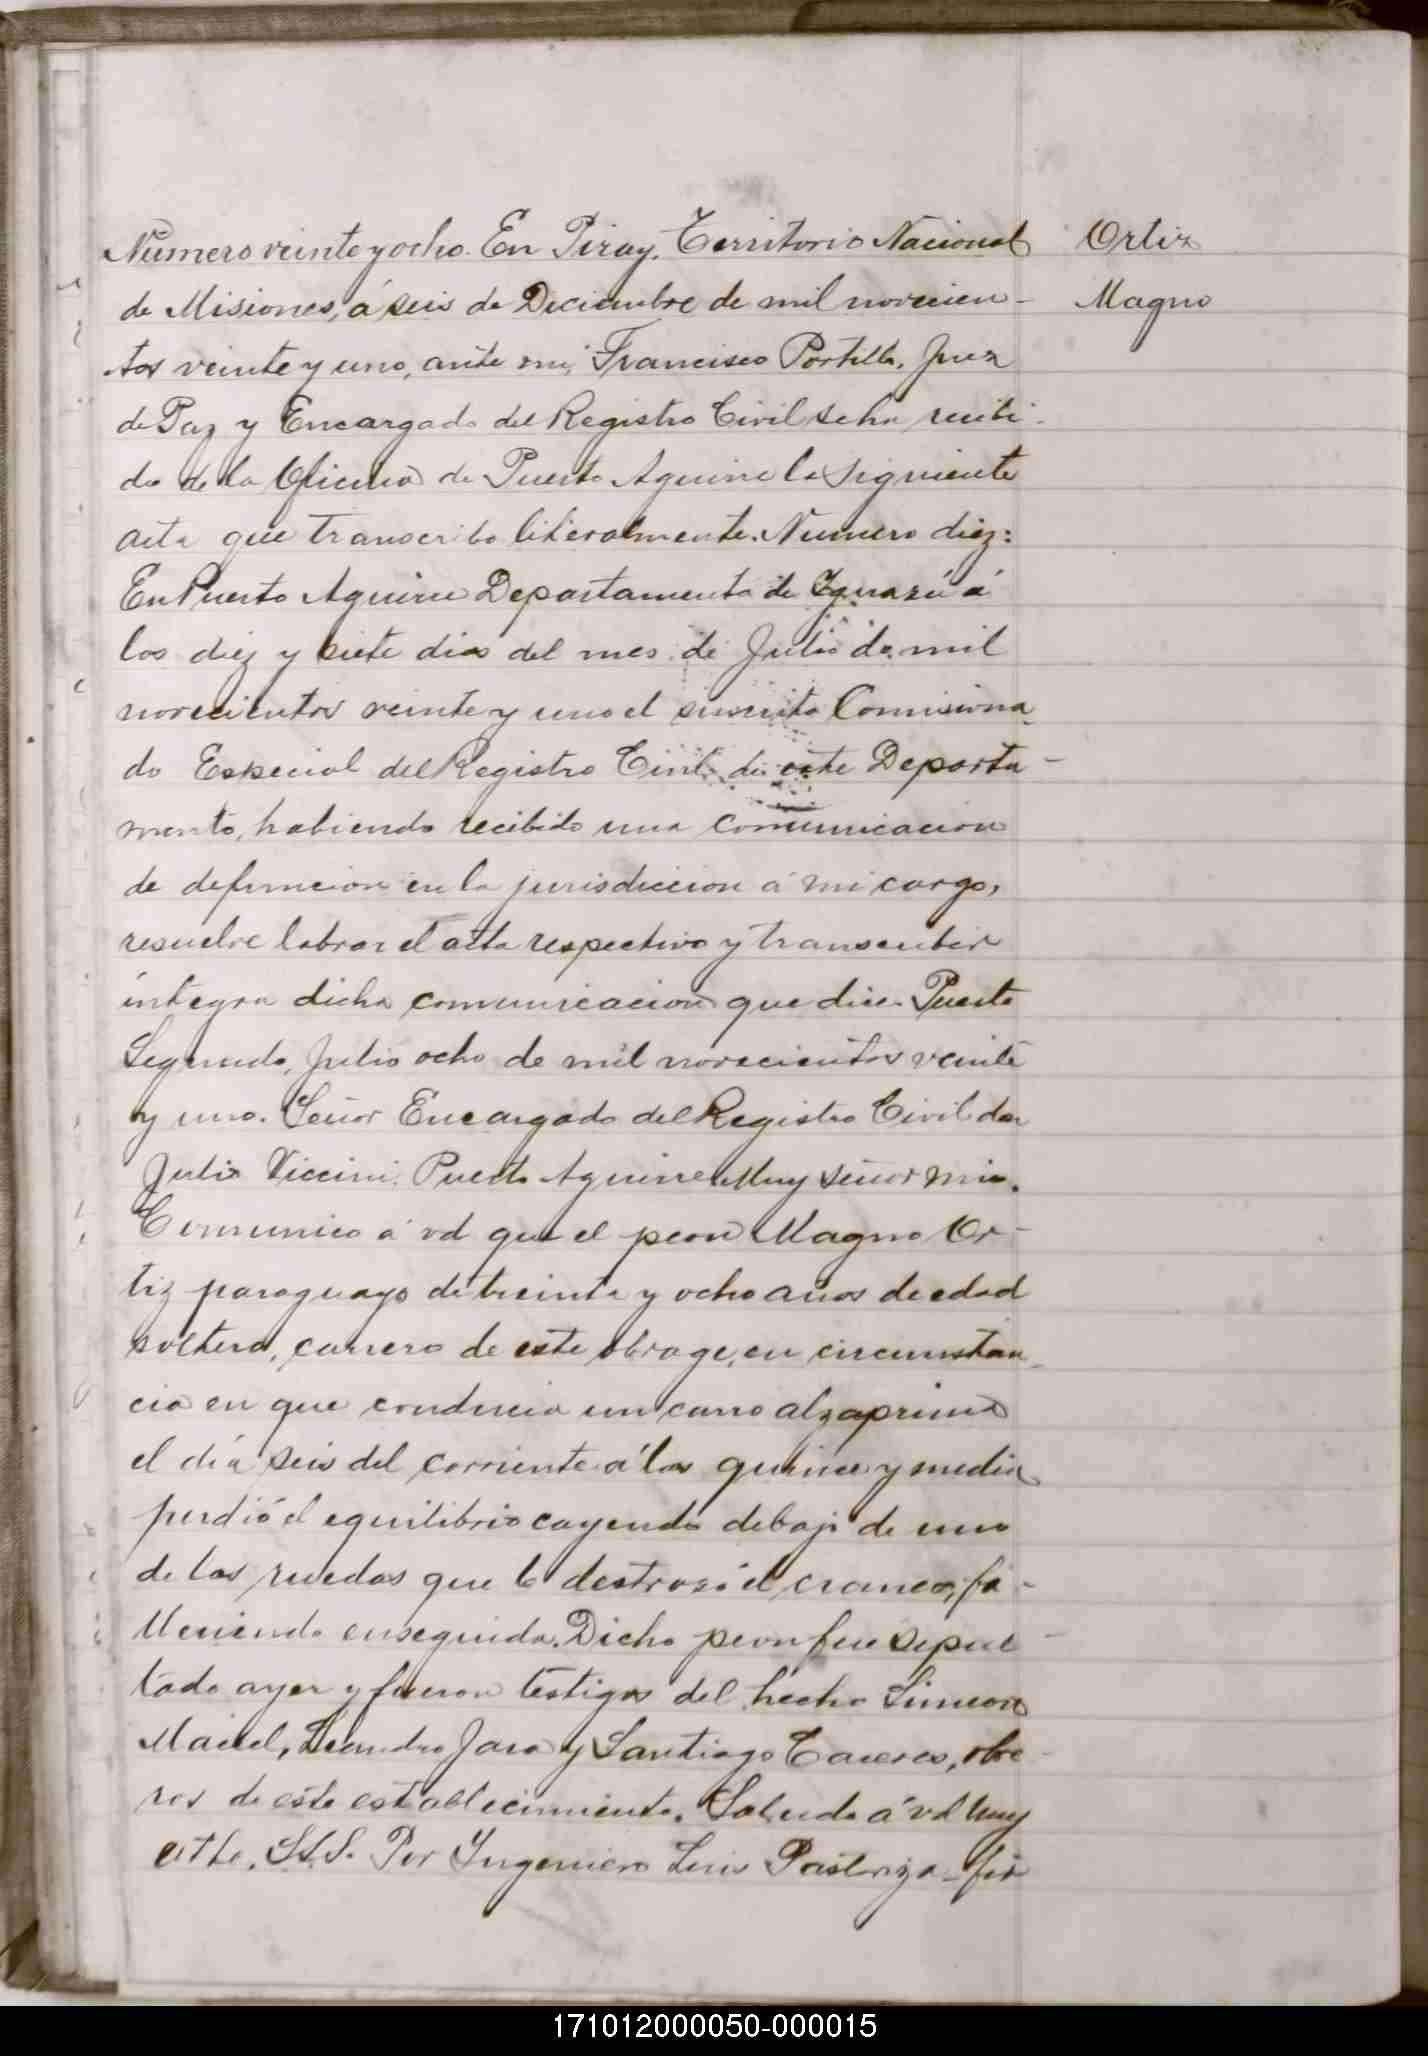 Numero veinte y ocho. En Piray, Territorio Nacional
de Misiones, á seis de Diciembre de mil novecien-
tos veinte y uno, ante mi, Francisco Portillo, Juez
de Paz y Encargado del Registro Civil se ha recibi-
do de la Oficina de Puerto Aguirre la siguiente
acta que transcribo literalmente. Numero diez:
En Puerto Aguirre Departamento de Iguazú á
los diez y siete dias del mes de Julio de mil
novecientos veinte y uno el suscrito Comisiona-
do Especial del Registro Civil de este Departa-
mento, habiendo recibido una comunicacion
de defuncion en la jurisdiccion á mi cargo,
resuelve labrar el acta respectiva y transcribir
integra dicha comunicacion que dice. Puerto
Segundo, Julio ocho de mil novecientos veinte
y uno. Señor Encargado del Registro Civil don
Julio Viccini. Puerto Aguirre Muy señor mio.
Comunico á vd que el peon Magno Or-
tiz paraguayo de treinta y ocho años de edad
soltero, carrero de este obrage, en circunstan-
cia en que conducia un carro alzaprima
el día seis del corriente á las quince y media
perdió el equilibrio cayendo debajo de una
de las ruedas que le destrozó el craneo, fa-
lleciendo enseguida. Dicho peon fue sepul-
tado ayer y fueron testigos del hecho Simeon
Maciel, Leandro Jara y Santiago Caceres, obre-
ros de este establecimiento. Saludo á vd muy
atto. S.S.S. Por Ingeniero Luis Pastoriza - fir
Ortiz
Magno
171012000050-000015